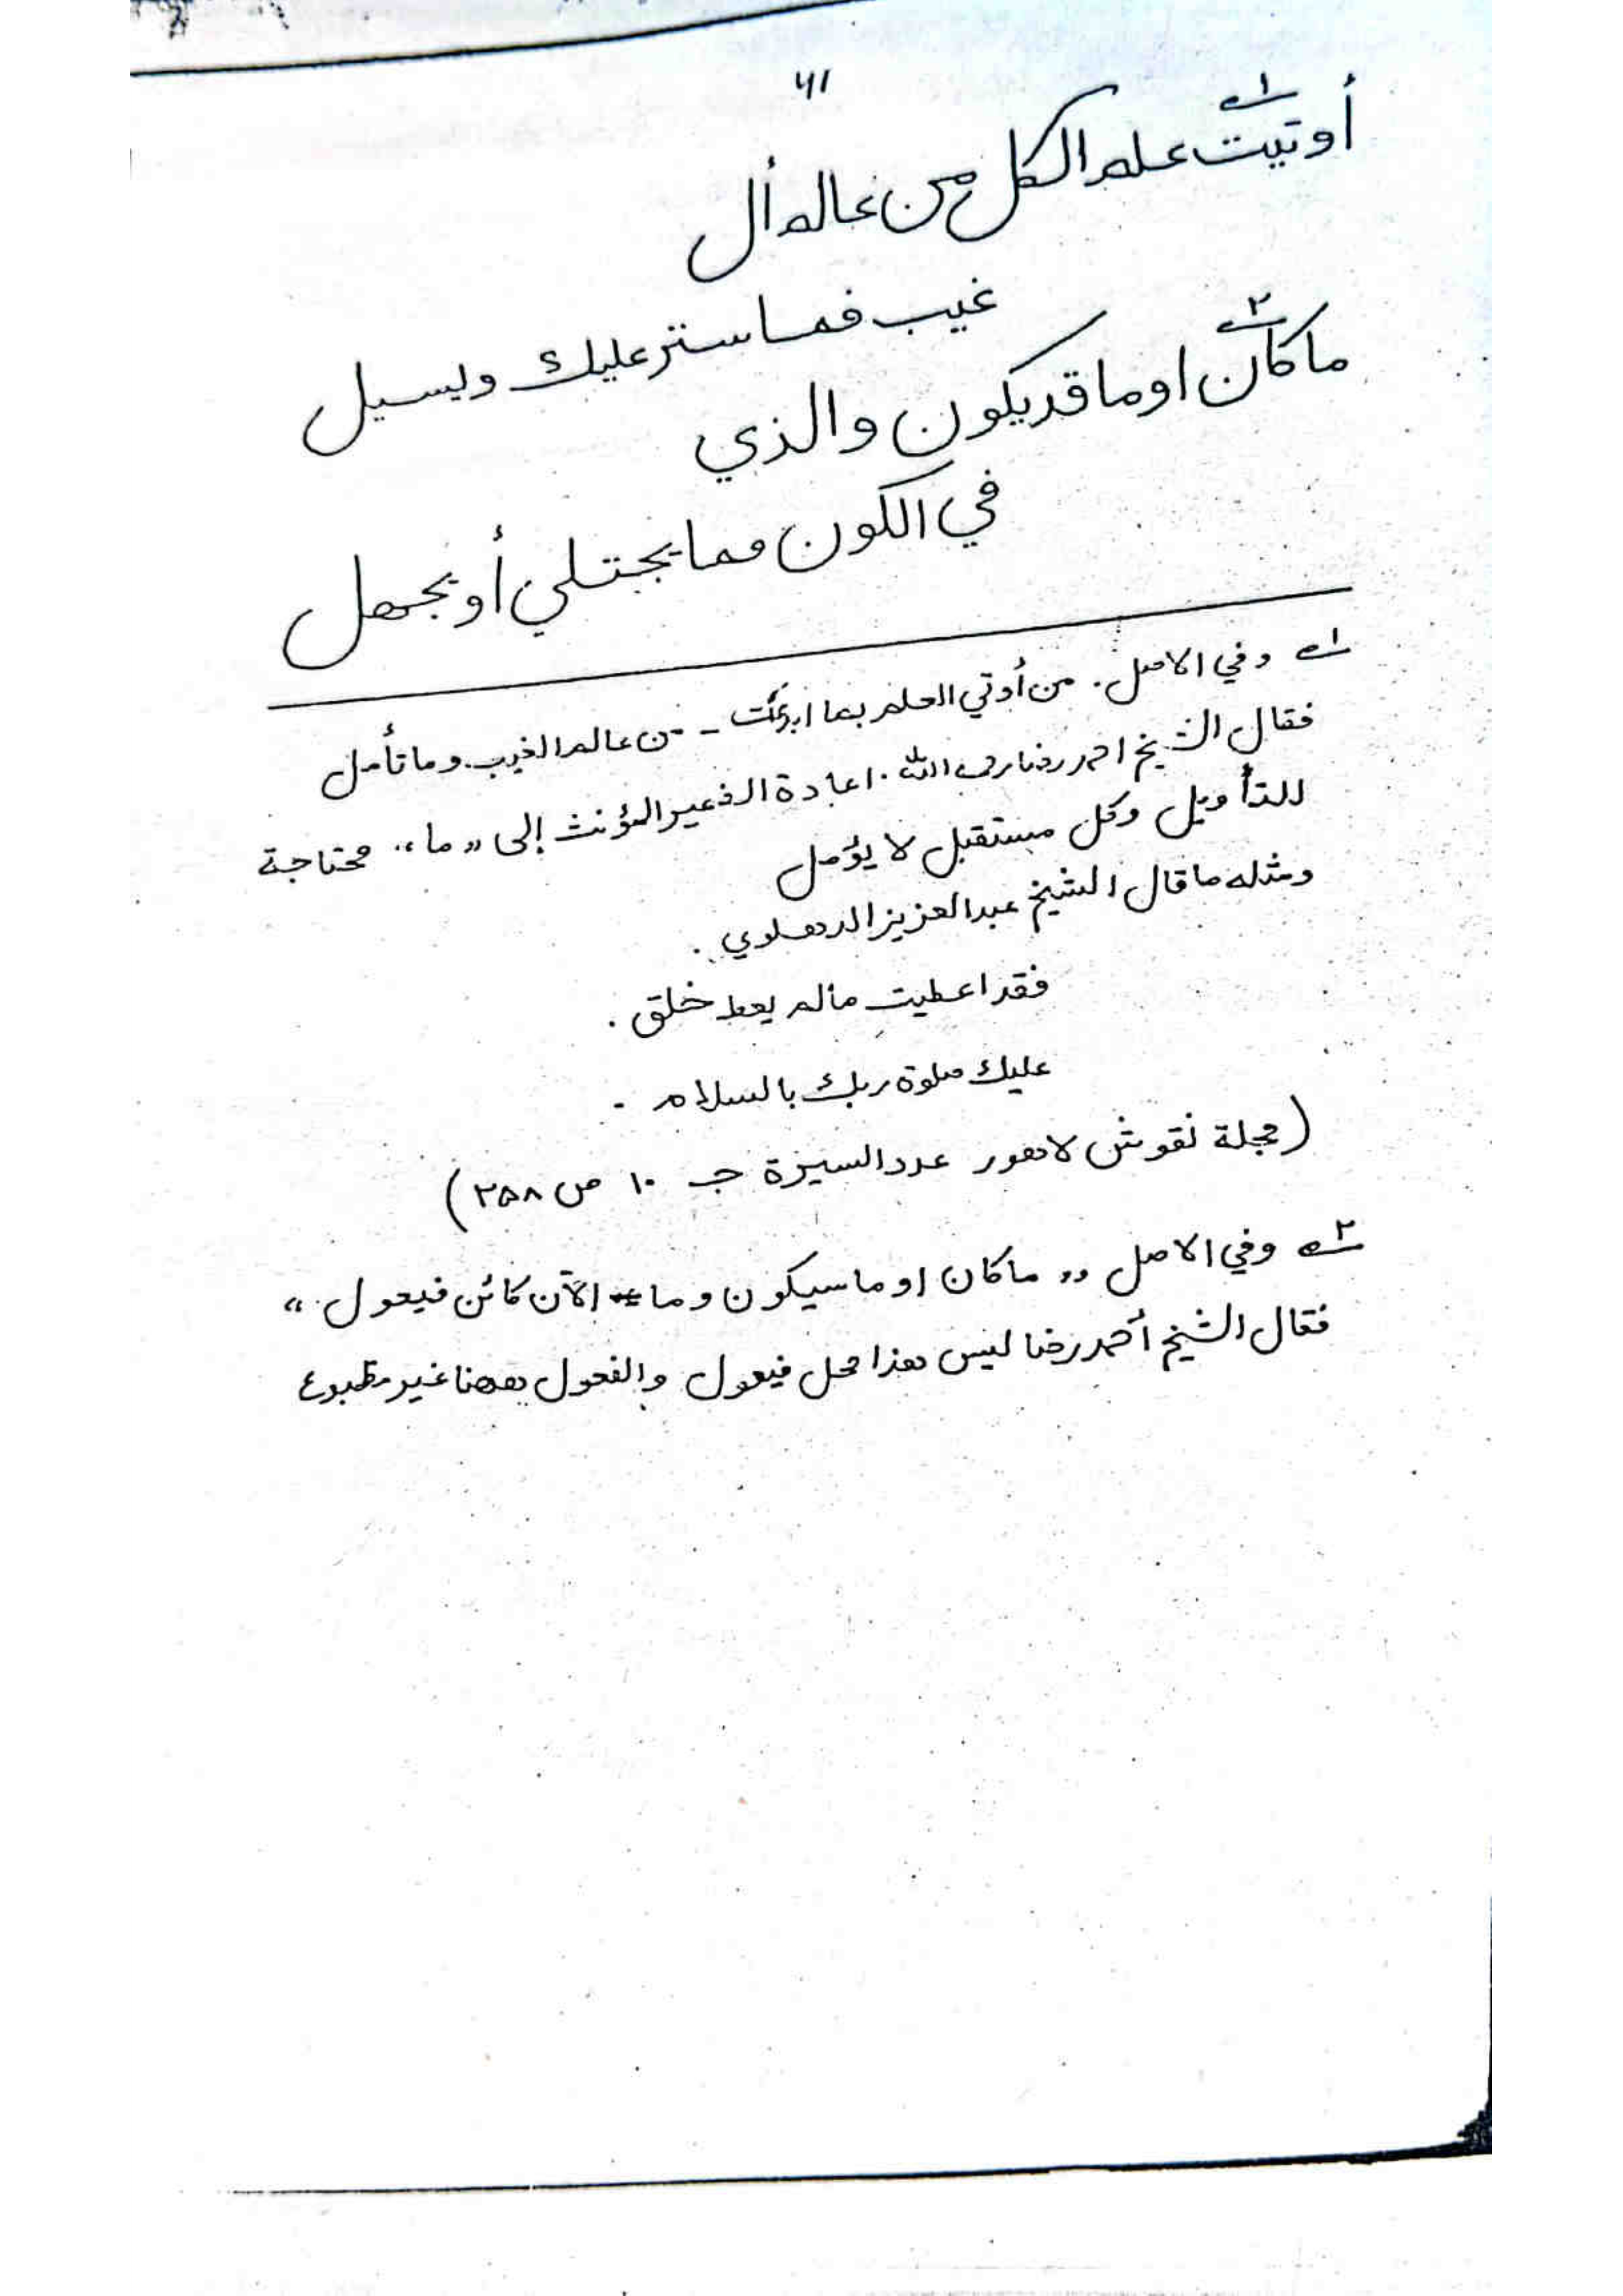 ۶۱
أوتيت علم الكل من عالم أل
غيب فما ستر عليك ويسيل
ما كان او ما قد يكون والذي
في الكون مما يجتلي أو يجهل
۱ وفي الاصل. من أوتي العلم بما ابرئت - من عالم الغيب وما تأمل
فقال الشيخ احمد رضا اعادة الضمير المؤنث إلى "ما" محتاجة
للتأويل وكل مستقبل لا يؤمل
ومثله ما قال الشيخ عبد العزيز الدهلوي.
فقد اعطيت مالم يعط خلق.
عليك صلوة ربك بالسلام -
(مجلة نقوش لاهور عدد السيرة جـ ۱۰ ص ۲۵۸)
۲ وفي الاصل "ما كان او ما سيكون وما الآن كائن فيعول"
فقال الشيخ أحمد رضا ليس هذا محل فيعول والفعول ههنا غير مطبوع